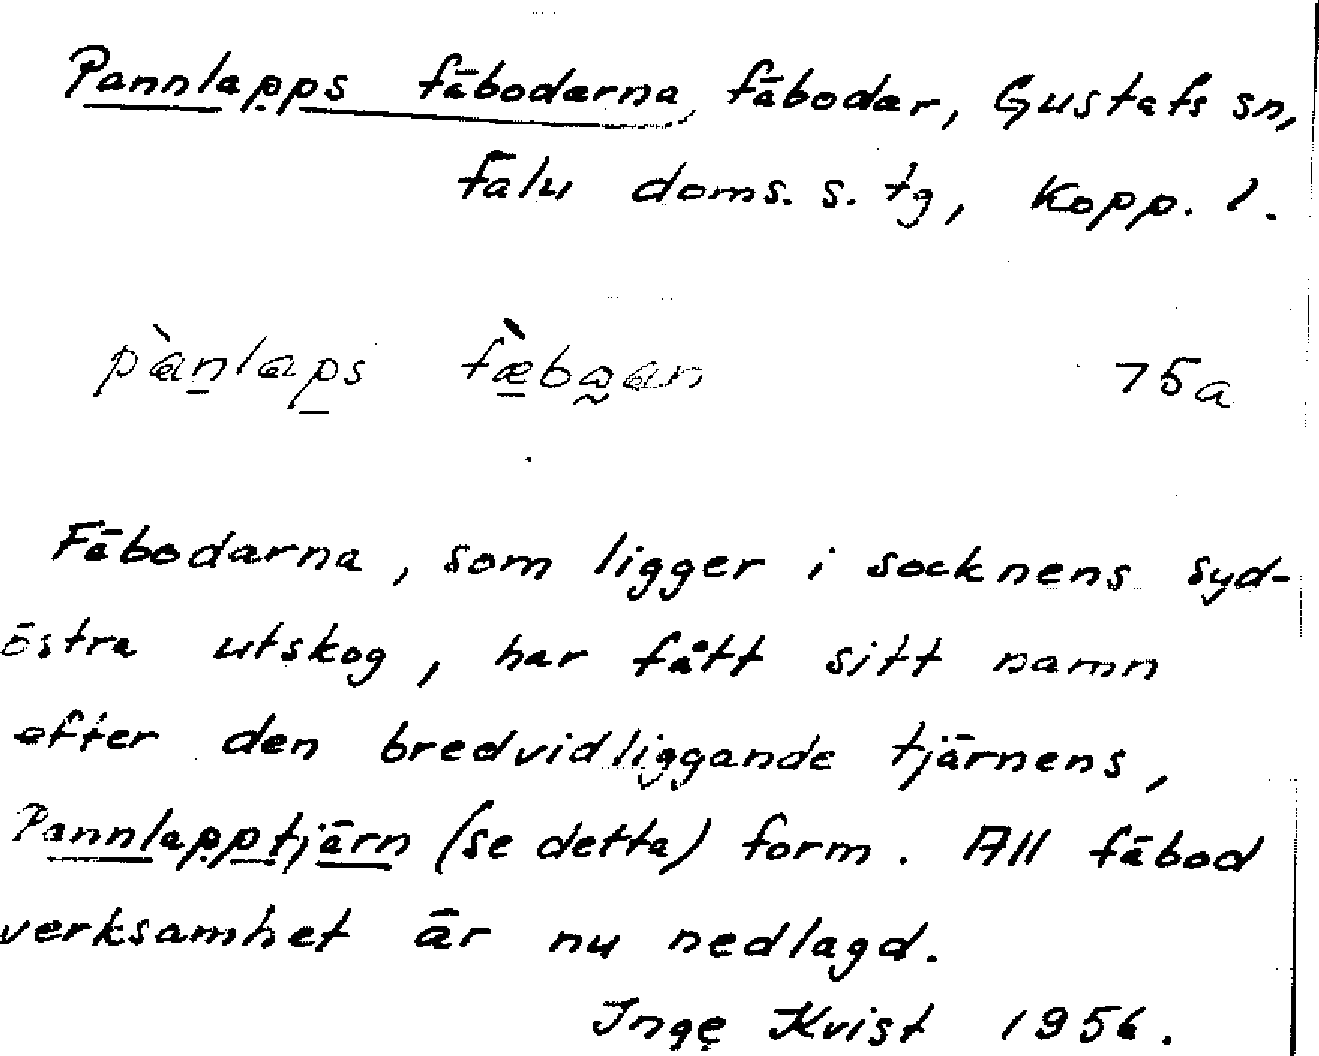 Pannlapps fäbodarna, fäbodar, Gustafs sn,
Falu doms. s. tg, Kopp. l.
pànlaps fæ̀bəan 75a
Fäbodarna, som ligger i socknens syd-
östra utskog, har fått sitt namn
efter den bredvidliggande tjärnens,
Pannlapptjärn (se detta) form. All fäbod
verksamhet är nu nedlagd.
Inge Kvist 1956.